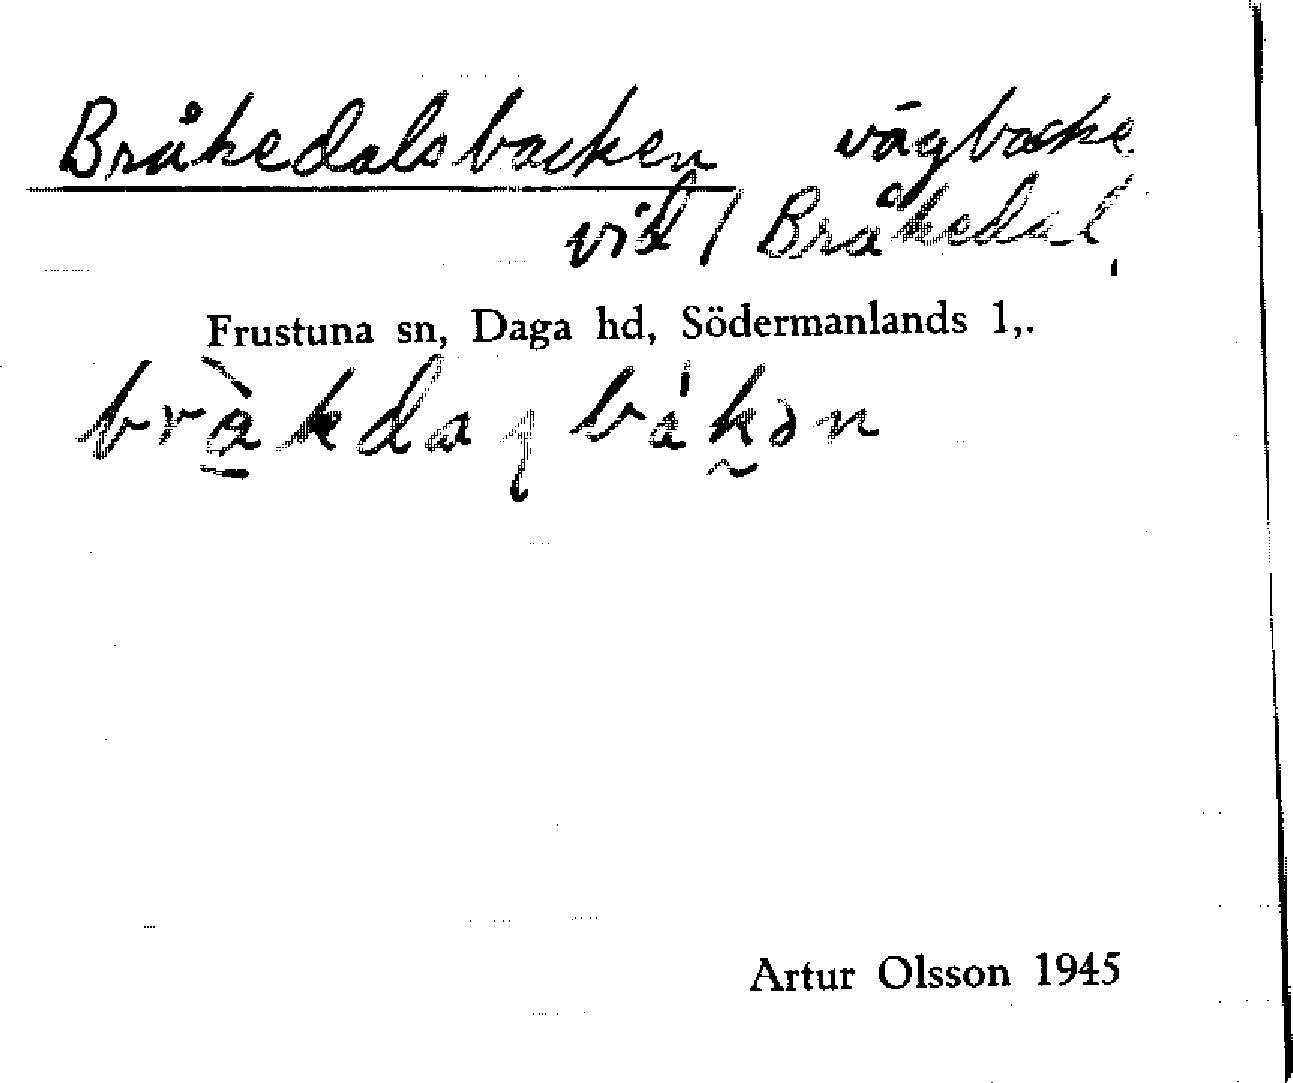 Bråkedalsbacken vägbacke
vid / Bråkedal
Frustuna sn, Daga hd, Södermanlands l,.
Artur Olsson 1945